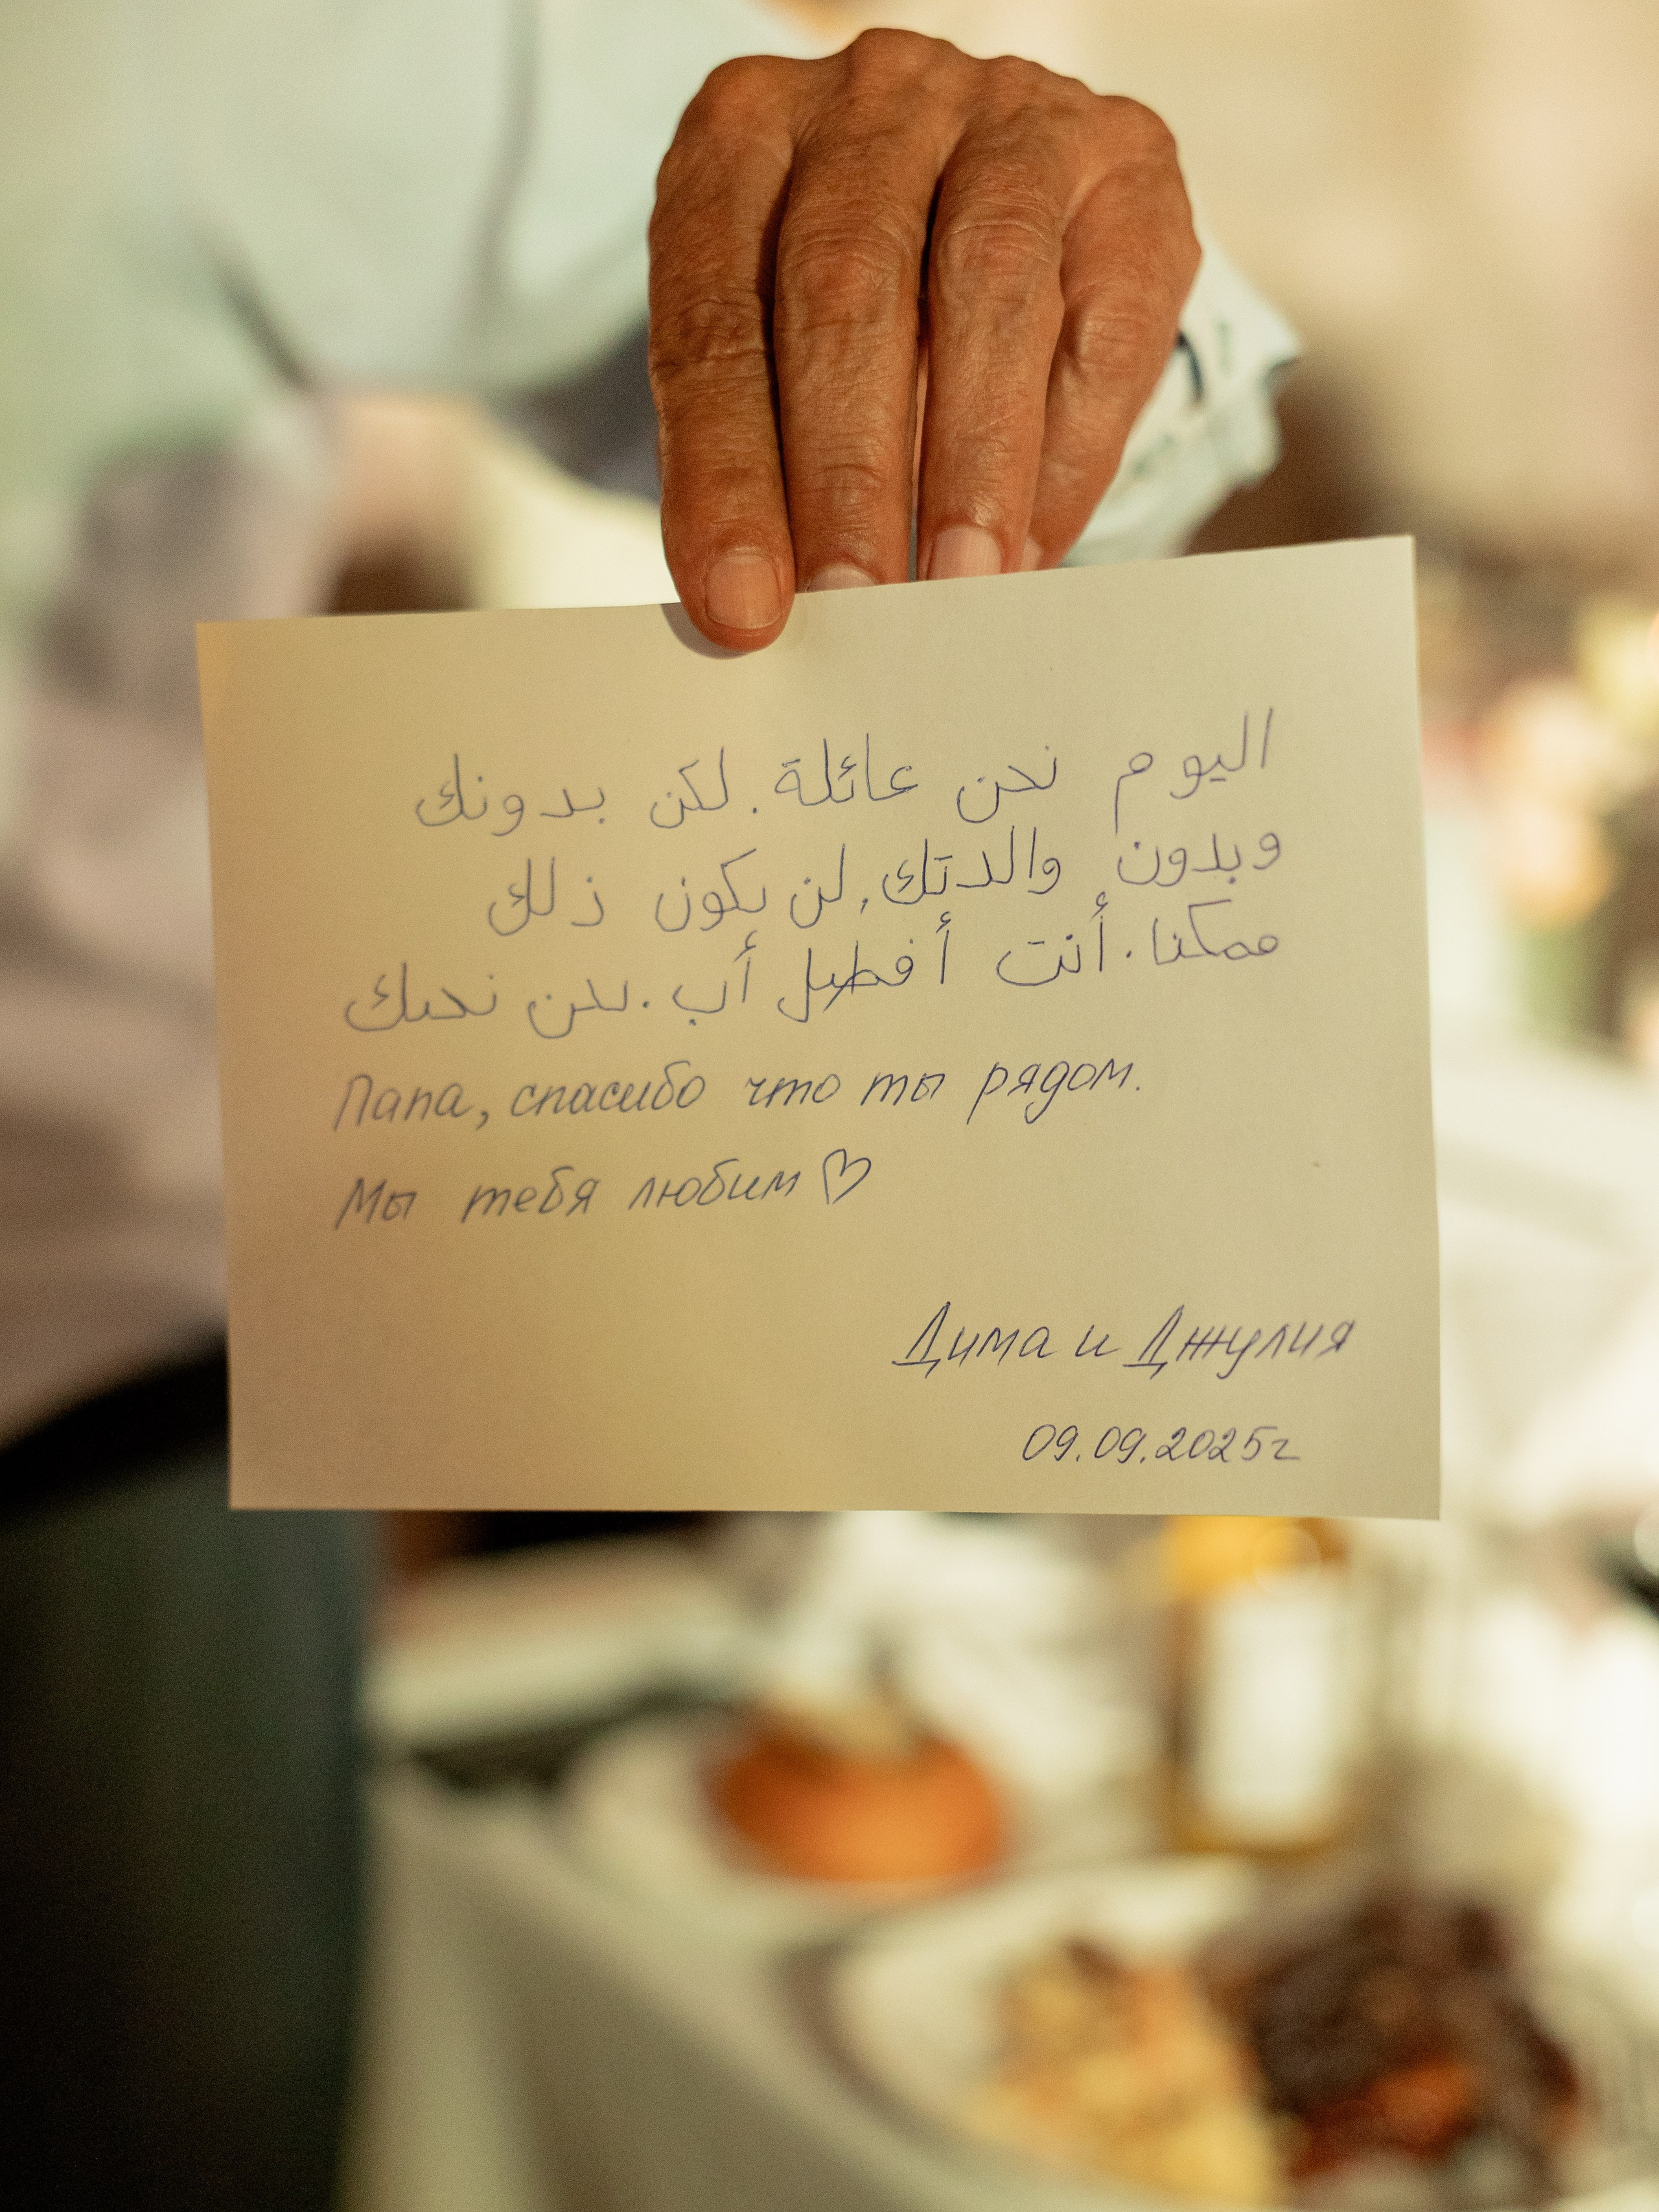 اليوم نحن عائلة. لكن بدونك
وبدون والدتك, لن يكون ذلك
ممكنا. أنت أفضل أب. نحن نحبك
Папа, спасибо что ты рядом.
Мы тебя любим♡
Дима и Джулия
09.09.2025г